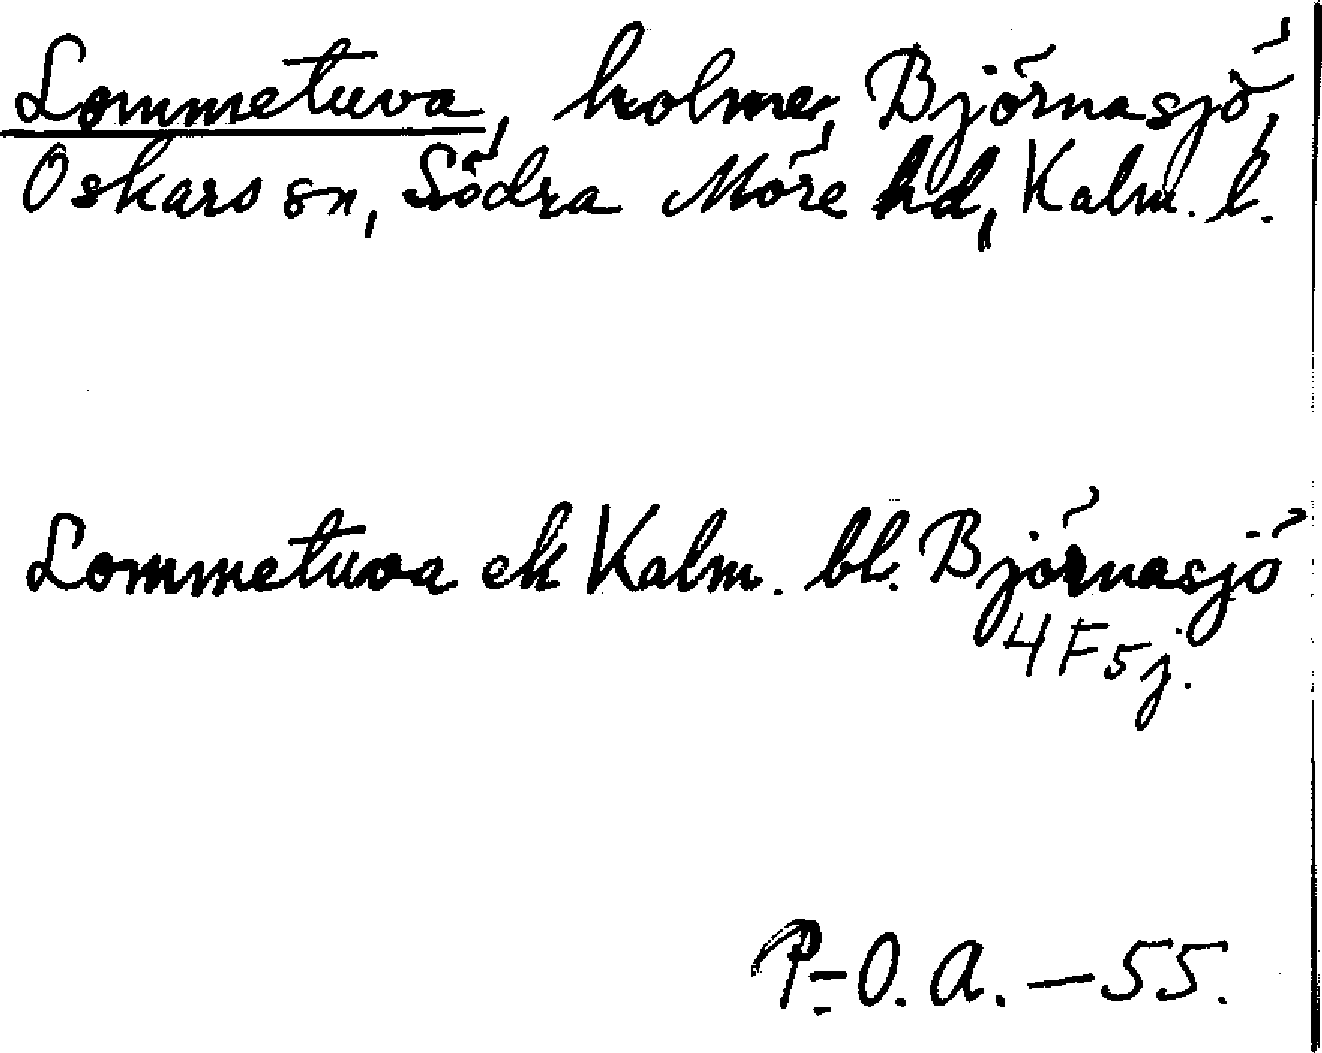 Lommetuva, holme, Björnasjö,
Oskars sn, Södra Möre hd, Kalm. l.
Lommetuva ek Kalm. bl. Björnasjö
4 F 5 j.
P-O. A. – 55.